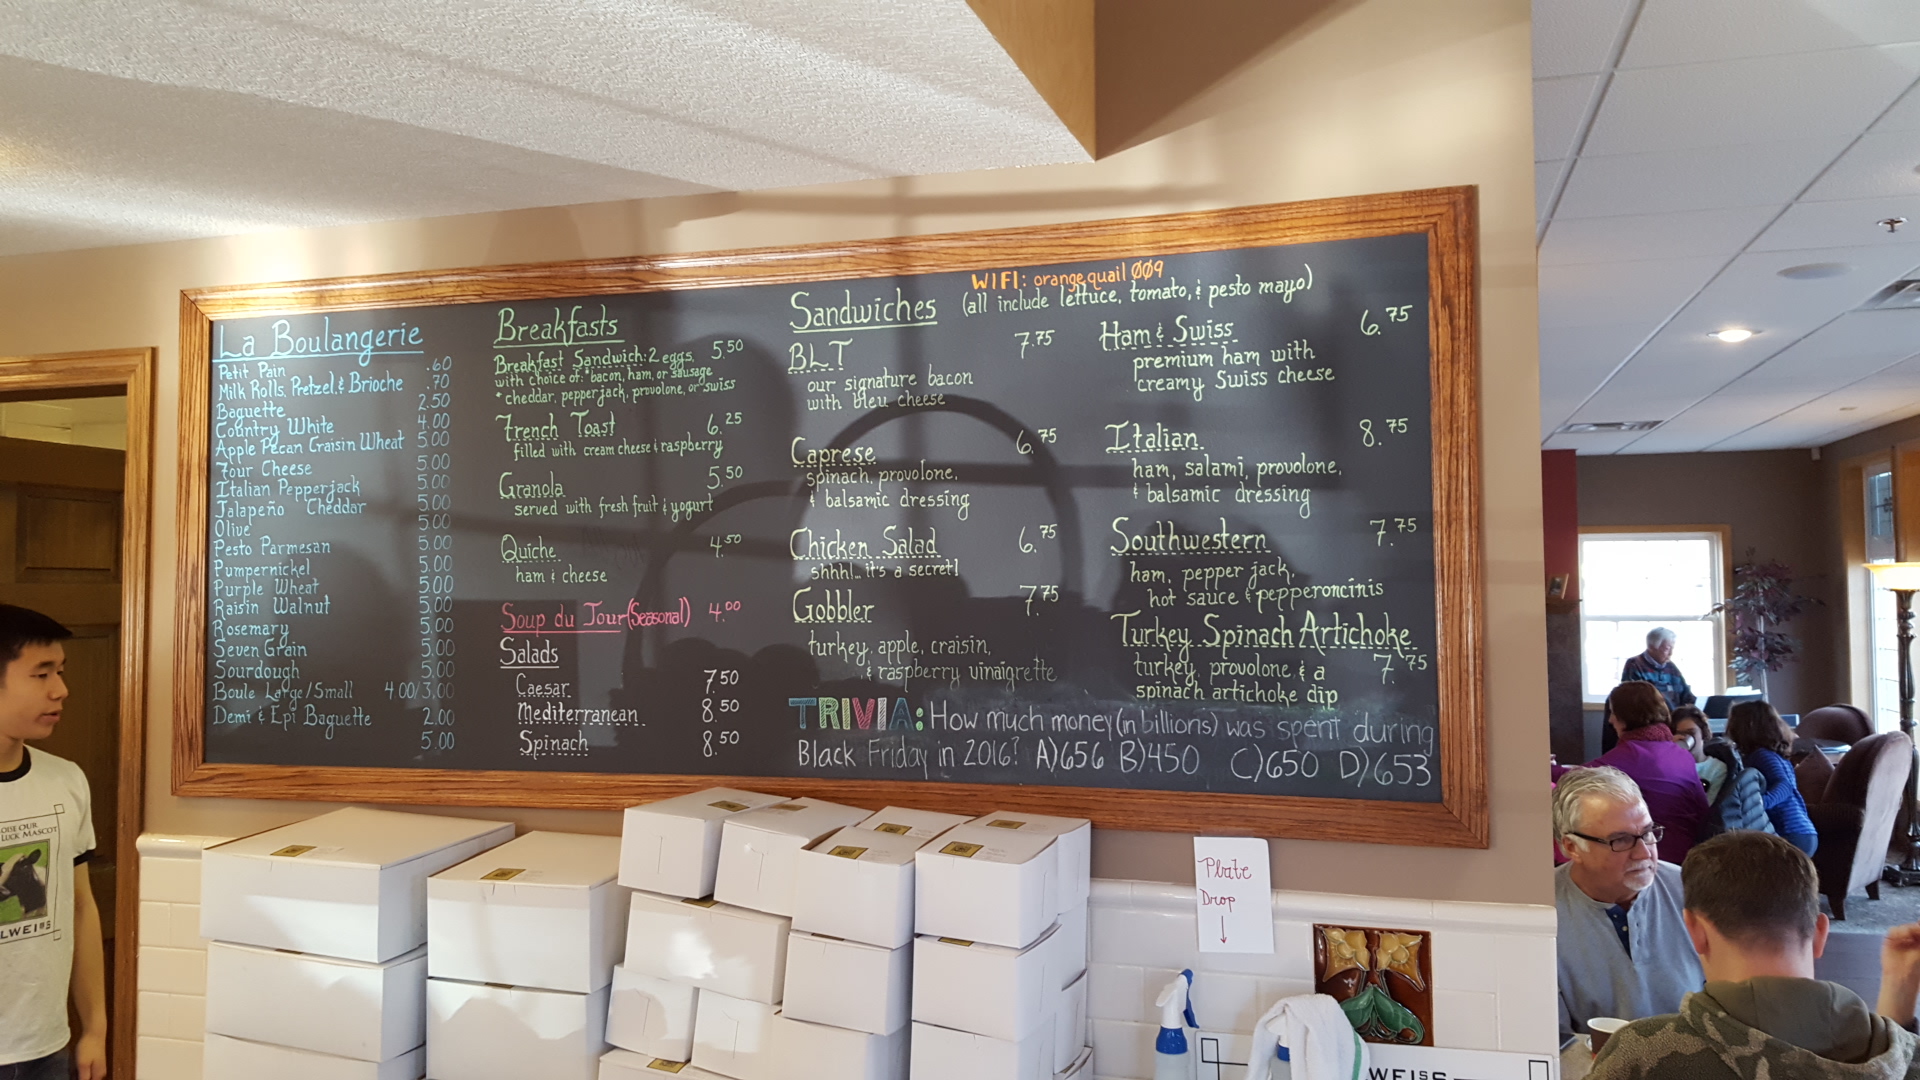 WIFI: orangequail009
La Boulangerie
Petit Pain .60
Milk Rolls, Pretzel & Brioche .70
Baguette 2.50
Country White 4.00
Apple Pecan Craisin Wheat 5.00
Four Cheese 5.00
Italian Pepperjack 5.00
Jalapeño Cheddar 5.00
Olive 5.00
Pesto Parmesan 5.00
Pumpernickel 5.00
Purple Wheat 5.00
Raisin Walnut 5.00
Rosemary 5.00
Seven Grain 5.00
Sourdough 5.00
Boule Large/Small 4.00/3.00
Demi & Epi Baguette 2.00
5.00
Breakfasts
Breakfast Sandwich: 2 eggs, 5.50
with choice of: *bacon, ham, or sausage
*cheddar, pepperjack, provolone, or swiss
French Toast 6.25
filled with cream cheese & raspberry
Granola 5.50
served with fresh fruit & yogurt
Quiche 4.50
ham & cheese
Soup du Jour (Seasonal) 4.00
Salads
Caesar 7.50
Mediterranean 8.50
Spinach 8.50
Sandwiches (all include lettuce, tomato, & pesto mayo)
BLT 7.75
our signature bacon
with bleu cheese
Caprese 6.75
spinach, provolone,
& balsamic dressing
Chicken Salad 6.75
shhh!... it's a secret!
Gobbler 7.75
turkey, apple, craisin,
& raspberry vinaigrette
Ham & Swiss 6.75
premium ham with
creamy Swiss cheese
Italian 8.75
ham, salami, provolone,
& balsamic dressing
Southwestern 7.75
ham, pepper jack,
hot sauce & pepperoncinis
Turkey Spinach Artichoke
turkey, provolone, & a 7.75
spinach artichoke dip
TRIVIA: How much money (in billions) was spent during
Black Friday in 2016? A) 656 B) 450 C) 650 D) 653
Plate
Drop
OUR
LUCK MASCOT
LWEISS
WEISS